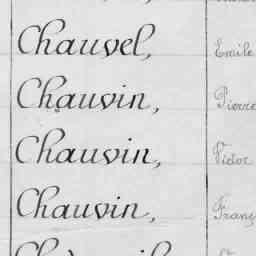 Chauvel, Emile
Chauvin, Pierre
Chauvin, Victor
Chauvin, Franç